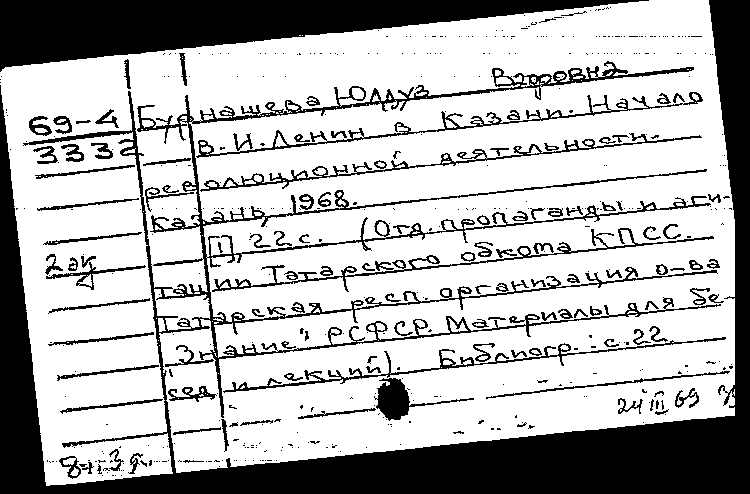 69-4
3332
Бурнашева, Юлдуз
В.И.Ленин в Казани. Начало
революционной деятельности.
Казань, 1968.
[1], 22 с. (Отд. пропаганды и аги-
тации Татарского обкома КПСС.
Татарская респ. организация о-ва
"Знание" РСФСР. Материалы для бе-
сед и лекций). Библиогр.: с.22.
2 эк
24 III 69